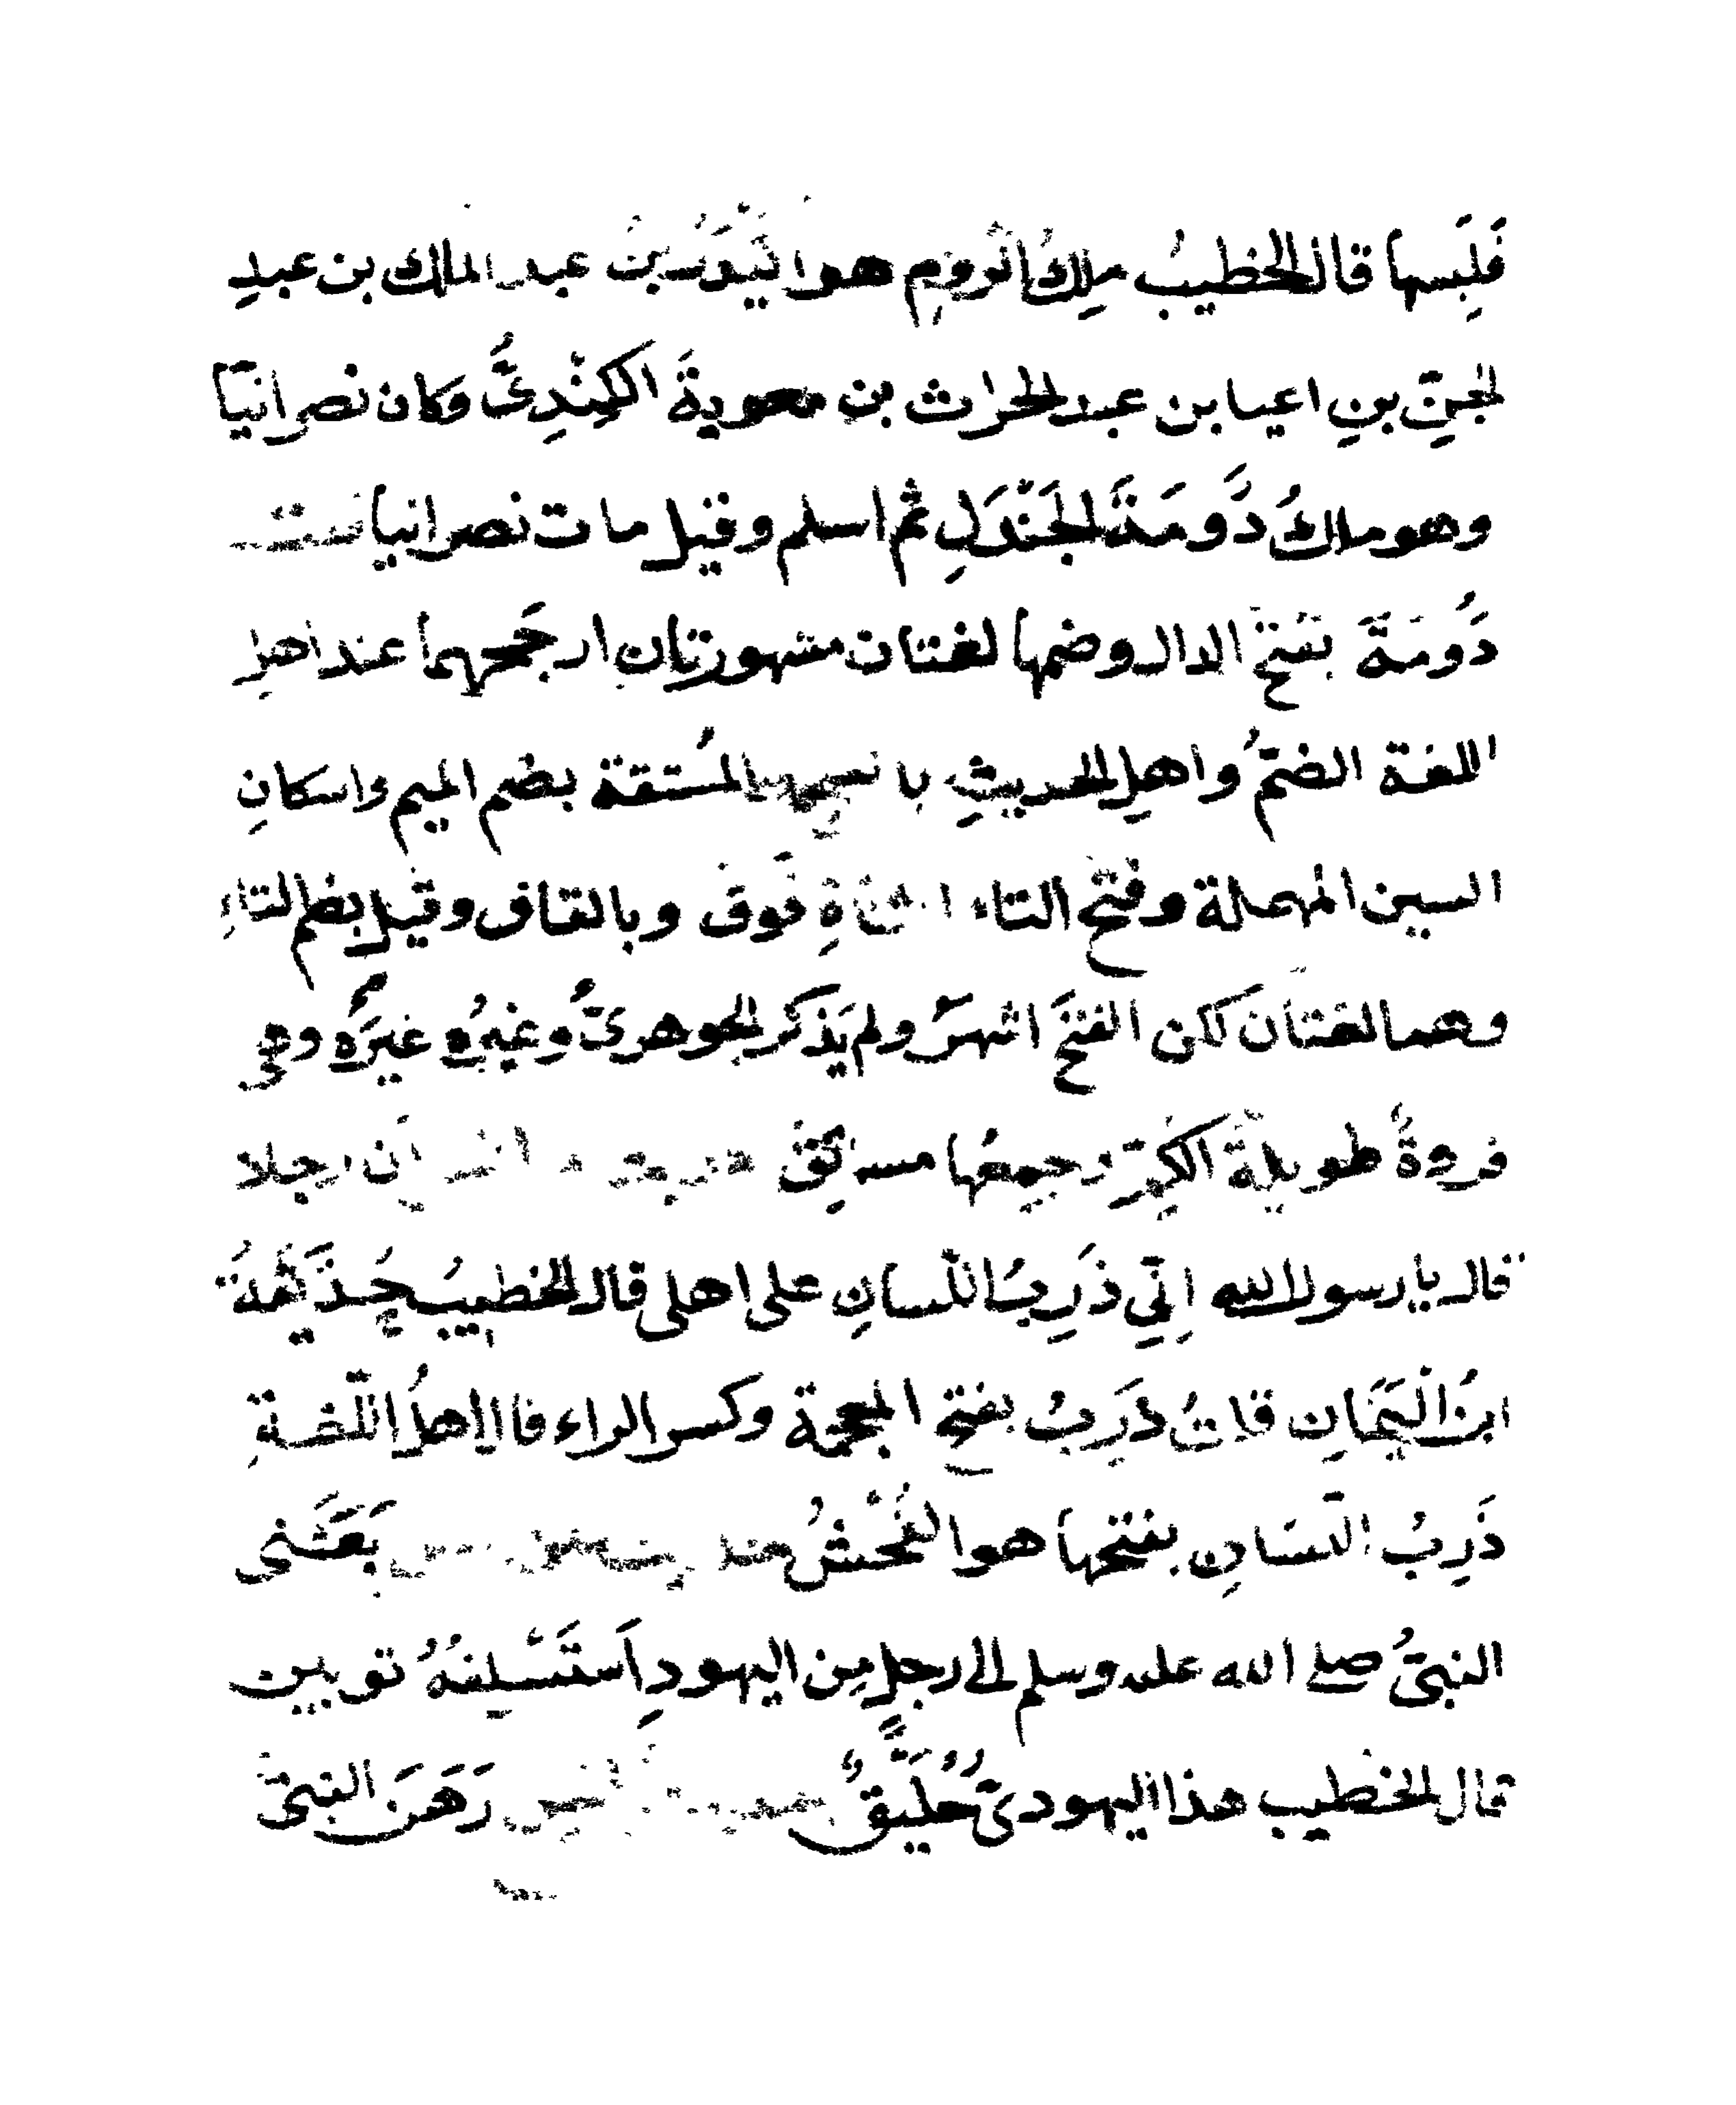 فَلَبِسها قال الخطيبُ ملِكُ الرومِ هو اكيدر بن عبد الملك بن عبدِ
الجنِّ بنِ اعيا بن عبد الحراث بن معوية الكِنْدِىُّ وكان نصرانيًّا
وهو ملك دَُومَةَ الجَنْدَلِ ثم اسلم وقيل مات نصرانيا قلت
دَُومَة بفتح الدال وضمها لغتان مشهورتان ارجحهما عند اهلِ
اللغة الضمُّ واهلِ الحديثِ بالفتح المُستقة بضم الميم واسكانِ
السين المهملة وفتح التاء المثناةِ فوق وبالقاف وقيل بضم التاءِ
وهما لغتان لكن الفتحَ اشهرُ ولم يَذكر الجوهرىُّ وغيرُه غيرَه وهى
فروةٌ طويلةُ الكمِّ وجمعُها مساتِقُ ان رجلا
قال يا رسول الله اِنّي ذَرِبُ اللّسانِ على اهلى قال الخطيبُ حُذَيْفَةُ
ابنُ الْيَمَانِ قلتُ ذَرِبُ بفتح المعجمة وكسر الراء قال اهلُ اللّغةِ
ذَرِبُ اللّسَانِ بفتحها هو الفُحْشُ بَعَثَنى
النبىُّ صلى الله عليه وسلم الى رجلٍ مِن اليهودِ اَستَسْلِفهُ ثوبين
قال الخطيب هذا اليهودىُّ حُلَيقٌ رَهَنَ النبىّ